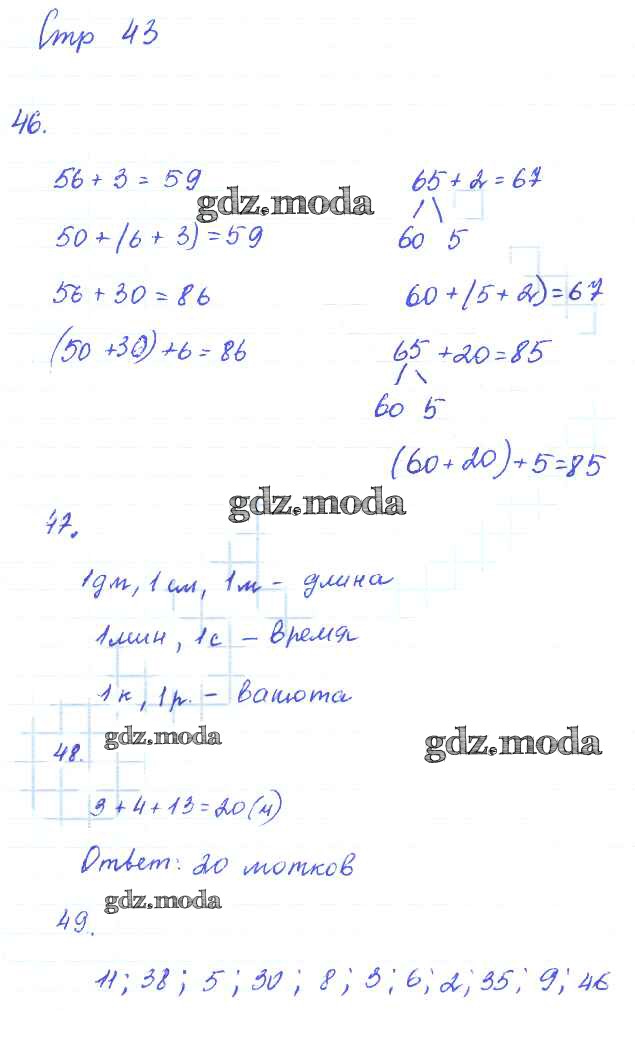 Стр 43
46.
56 + 3 = 59
gdz.moda
50 + (6 + 3) = 59
56 + 30 = 86
(50 + 30) + 6 = 86
65 + 2 = 67
60 5
60 + (5 + 2) = 67
65 + 20 = 85
60 5
(60 + 20) + 5 = 85
gdz.moda
47.
1дм, 1 см, 1 м - длина
1 мин, 1 с - время
1 к, 1 р. - валюта
gdz.moda
gdz.moda
48.
3 + 4 + 13 = 20 (м)
Ответ: 20 мотков
gdz.moda
49.
11; 38; 5; 30; 8; 3; 6; 2; 35; 9; 46